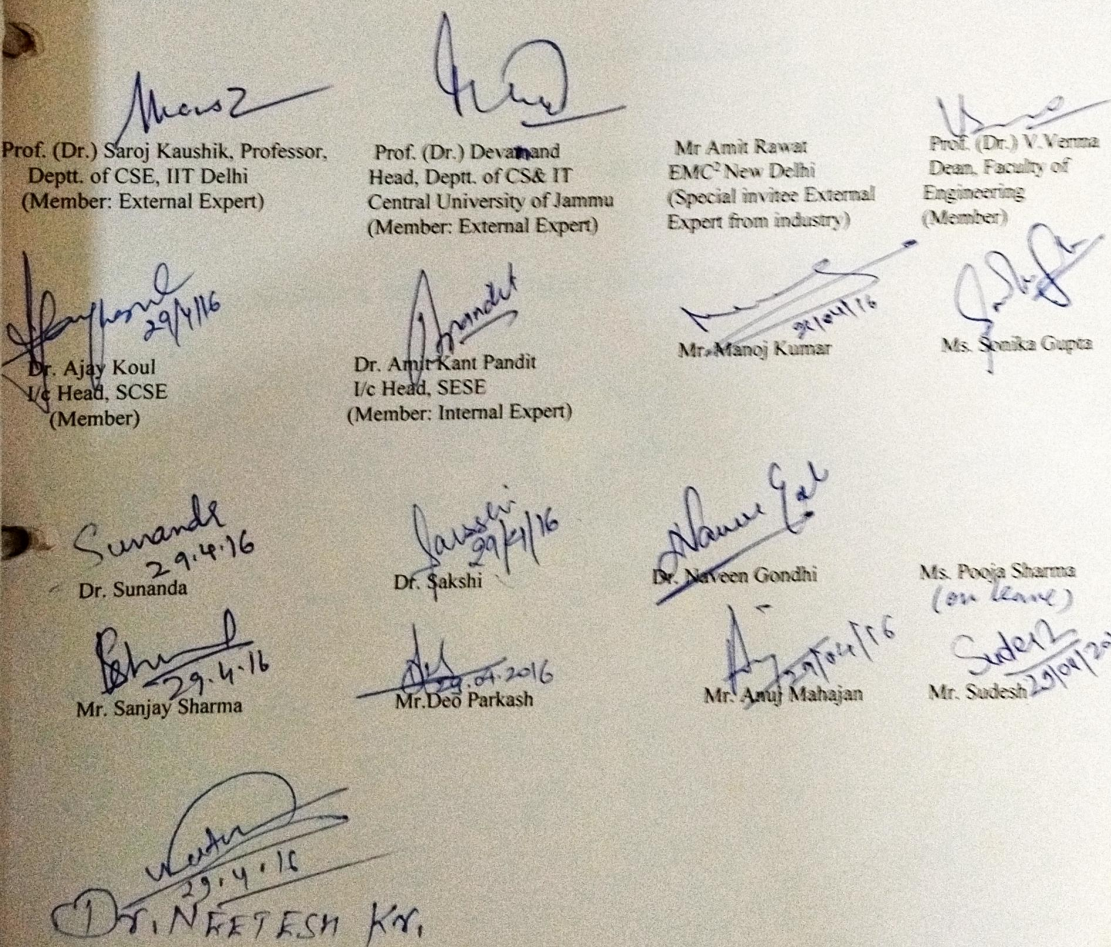 Prof. (Dr.) Saroj Kaushik, Professor,
Deptt. of CSE, IIT Delhi
(Member: External Expert)
Prof. (Dr.) Devanand
Head, Deptt. of CS& IT
Central University of Jammu
(Member: External Expert)
Mr Amit Rawat
EMC² New Delhi
(Special invitee External
Expert from industry)
Prof. (Dr.) V.Verma
Dean, Faculty of
Engineering
(Member)
29/4/16
Dr. Ajay Koul
I/c Head, SCSE
(Member)
Pandit
Dr. Amit Kant Pandit
I/c Head, SESE
(Member: Internal Expert)
Mr. Manoj Kumar
Ms. Sonika Gupta
Sunanda
29.4.16
Dr. Sunanda
29/4/16
Dr. Sakshi
Dr. Naveen Gondhi
Ms. Pooja Sharma
(on leave)
29.4.16
Mr. Sanjay Sharma
29.04.2016
Mr.Deo Parkash
29/04/16
Mr. Anuj Mahajan
Sudesh
Mr. Sudesh 29/04/20
29.4.16
① Dr. NEETESH Kr.